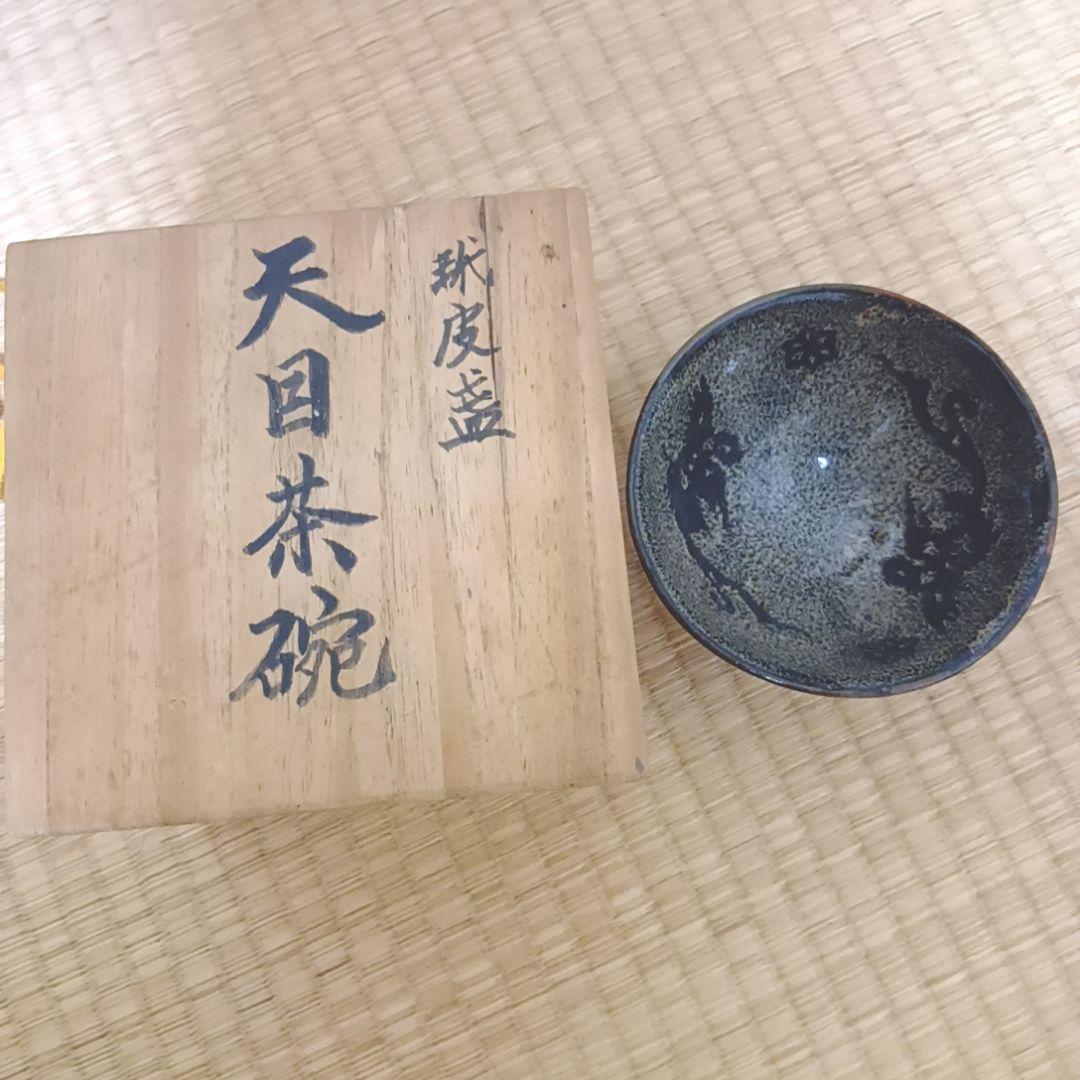 玳皮盏
天目茶碗